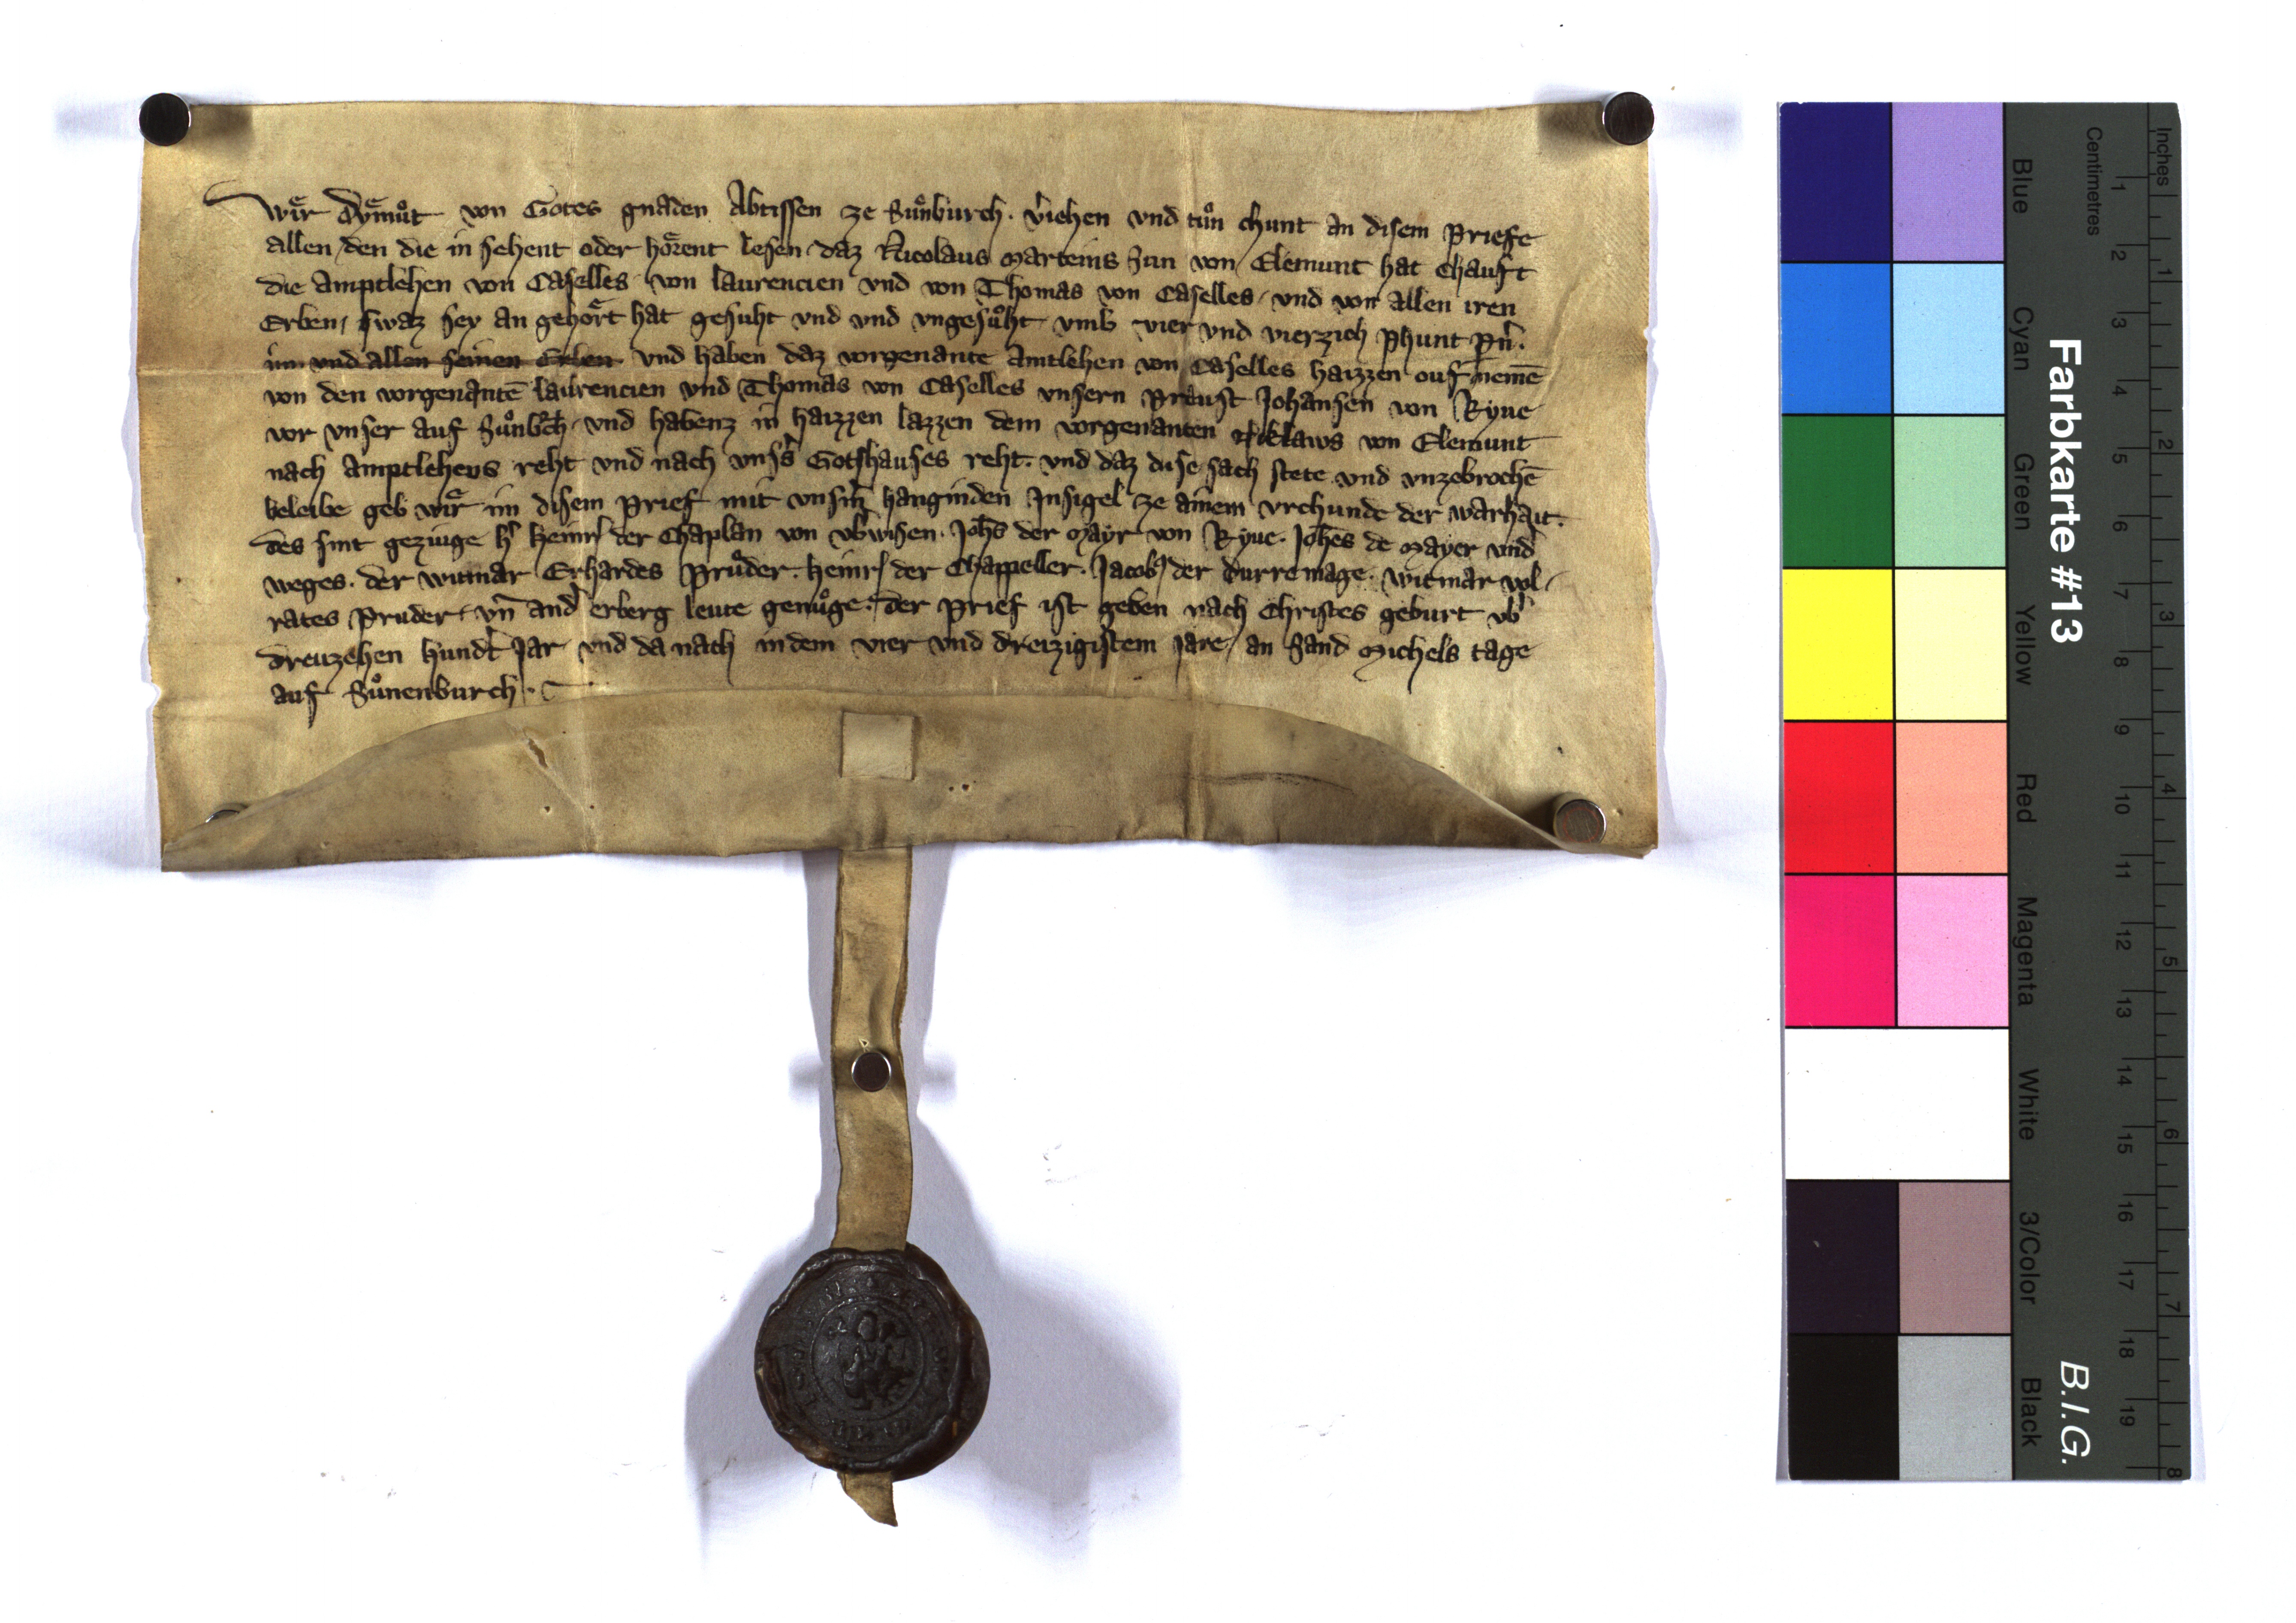 Wir Dymuͦt von Gotes gnaden Abtissen ze Suͦnburch. v̓iehen vnd tuͦn chunt an disem Priefe
allen den die in sehent oder hoͤrent lesen daz Nicolaus Marteins Sun von Elemunt hat Chauft
die amptlehen von Caselles von laurencien vnd von Thomas von Caselles vnd von allen iren
Erben, swaz sey an gehoͤrt hat gesuht vnd vnd vngesuͦht vmb vier vnd vierzich phunt pn̄.
im vnd allen seinen Erben vnd haben daz vorgenante amtlehen von Caselles haizzen ouf nemē
von den vorgenantē laurencien vnd Thomas von Caselles vnsern Probst Johansen von Ryue
vor vnser auf Suͦnbch vnd habenz in haizzen lazzen dem vorgenanten Niklaws von Elemunt
nach amptlehens reht vnd nach vnss̓ Gotshauses reht. vnd daz dise sach stete vnd vnzebrochē
beleibe geb wir im disem prief mit vnsm̓ hanginden Insigel ze ainem vrchunde der warhait.
des sint geziuge h̓ heinr̓ der Chaplan von vb̓wisen. Joh̄s der Mayr von Ryue. Joh̄es de Mayer vnd̓
weges. der witmar Erhardes Pruͦder. heinr̓ der Chappeller. Jacob der durre mage. witmar vol
rates Pruder. vn̄ and̓ erberg leute genuͦge. der prief ist geben nach Christes geburt vb̓
dreuzehen hundt̓ Jar vnd da nach in dem vier vnd dreizigistem jare, an Sand Michels tage
auf Suͦnenburch.
Farbkarte #13
B.I.G.
Centimetres
Inches
1 2 3 4 5 6 7 8 9 10 11 12 13 14 15 16 17 18 19
1 2 3 4 5 6 7 8
Blue
Cyan
Green
Yellow
Red
Magenta
White
3/Color
Black